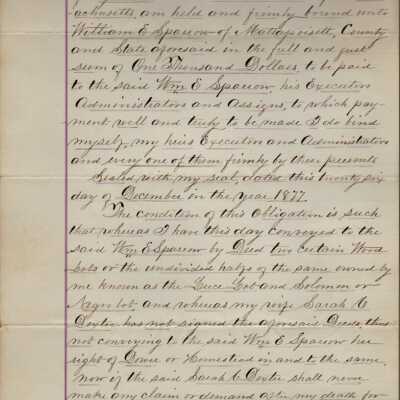 achusetts, am held and firmly bound unto
William E Sparrow of Mattapoisett, County
and State aforesaid in the full and just
sum of One Thousand Dollars, to be paid
to the said Wm E Sparrow, his Executors
Administrators and Assigns, to which pay-
ment well and truly to be made I do bind
myself, my heirs Executors and Administrators
and every one of them firmly by these presents
Sealed with my seal, dated this twenty six
day of December in the year 1877.
The condition of this Obligation is such
that whereas I have this day conveyed to the
said Wm E Sparrow by Deed two certain Wood
Lots or the undivided halfs of the same owned by
me known as the Luce Lot and Solomon or
Negro lot, and whereas my wife Sarah C
Dexter has not signed the aforesaid Deeds, thus
not conveying to the said Wm E Sparrow her
right of Dower or Homestead in and to the same,
now if the said Sarah C Dexter shall never
make any claim or demand after my death for